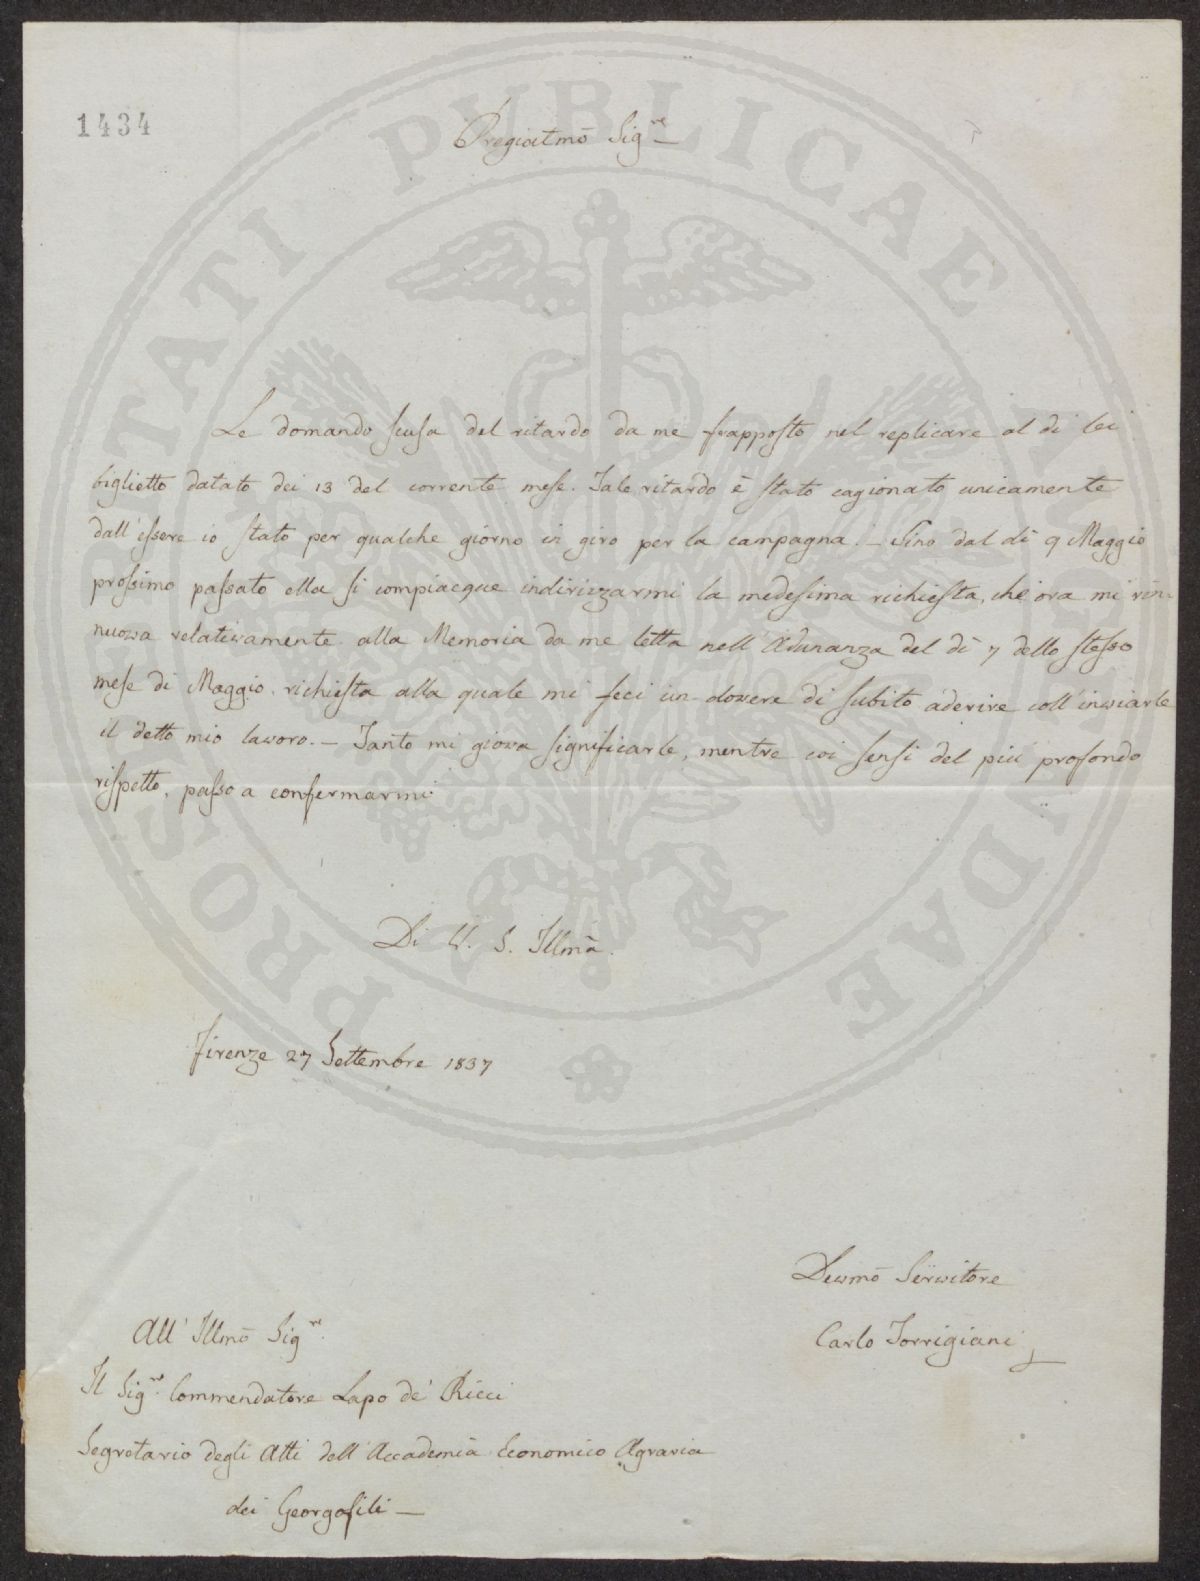 1434
Pregiatmõ Sig.re
PROSPERITATI PUBLICAE AUGENDAE
Le domando scusa del ritardo da me frapposto nel replicare al di lei
biglietto datato dei 13 del corrente mese. Tale ritardo è stato cagionato unicamente
dall'essere io stato per qualche giorno in giro per la campagna. — Sino dal dì 9 Maggio
prossimo passato ella si compiacque indirizzarmi la medesima richiesta, che ora mi rin-
nuova relativamente alla Memoria da me letta nell'Adunanza del dì 7 dello stesso
mese di Maggio. richiesta alla quale mi feci un dovere di subito aderire coll'inviarle
il detto mio lavoro. — Tanto mi giova significarle, mentre coi sensi del più profondo
rispetto, passo a confermarmi
Di V. S. Illmã.
Firenze 27 Settembre 1837
Devmõ Servitore
Carlo Torrigiani
All' Illmõ Sig.re
Il Sig.re Commendatore Lapo de' Ricci
Segretario degli Atti dell'Accademia Economico Agraria
dei Georgofili —